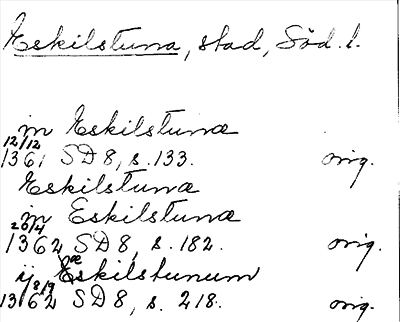 Eskilstuna, stad, Söd. l.
in Eskilstunæ
12/12
1361 SD 8, s. 133. orig.
Eskilstunæ
in Eskilstunæ
26/4
1362 SD 8, s. 182. orig.
ij Eskilstunum
8/9
1362 SD 8, s. 218. orig.